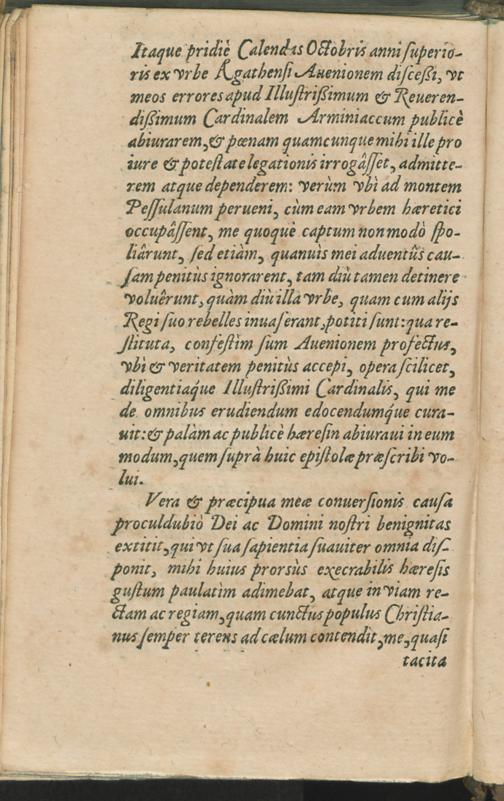 Itaque pridiè Calendas Octobris anni superio-
ris ex vrbe Agathensi Auenionem discessi, vt
meos errores apud Illustrißimum & Reueren-
dißimum Cardinalem Arminiaccum publicè
abiurarem, & pœnam quamcunque mihi ille pro
iure & potestate legationis irrogâsset, admitte-
rem atque dependerem: verùm vbi ad montem
Pessulanum perueni, cùm eam vrbem hæretici
occupâssent, me quoque captum non modò spo-
liârunt, sed etiàm, quanuis mei aduentûs cau-
sam penitùs ignorarent, tam diù tamen detinere
voluêrunt, quàm diù illa vrbe, quam cum alijs
Regi suo rebelles inuaserant, potiti sunt: qua re-
stituta, confestim sum Auenionem profectus,
vbi & veritatem penitùs accepi, opera scilicet,
diligentiaq́ue Illustrißimi Cardinalis, qui me
de omnibus erudiendum edocendumq́ue cura-
uit: & palàm ac publicè hæresin abiuraui in eum
modum, quem suprà huic epistolæ præscribi vo-
lui.
Vera & præcipua meæ conuersionis causa
proculdubiò Dei ac Domini nostri benignitas
extitit, qui vt sua sapientia suauiter omnia dis-
ponit, mihi huius prorsùs execrabilis hæresis
gustum paulatìm adimebat, atque in viam re-
ctam ac regiam, quam cunctus populus Christia-
nus semper terens ad cælum contendit, me, quasi
tacita